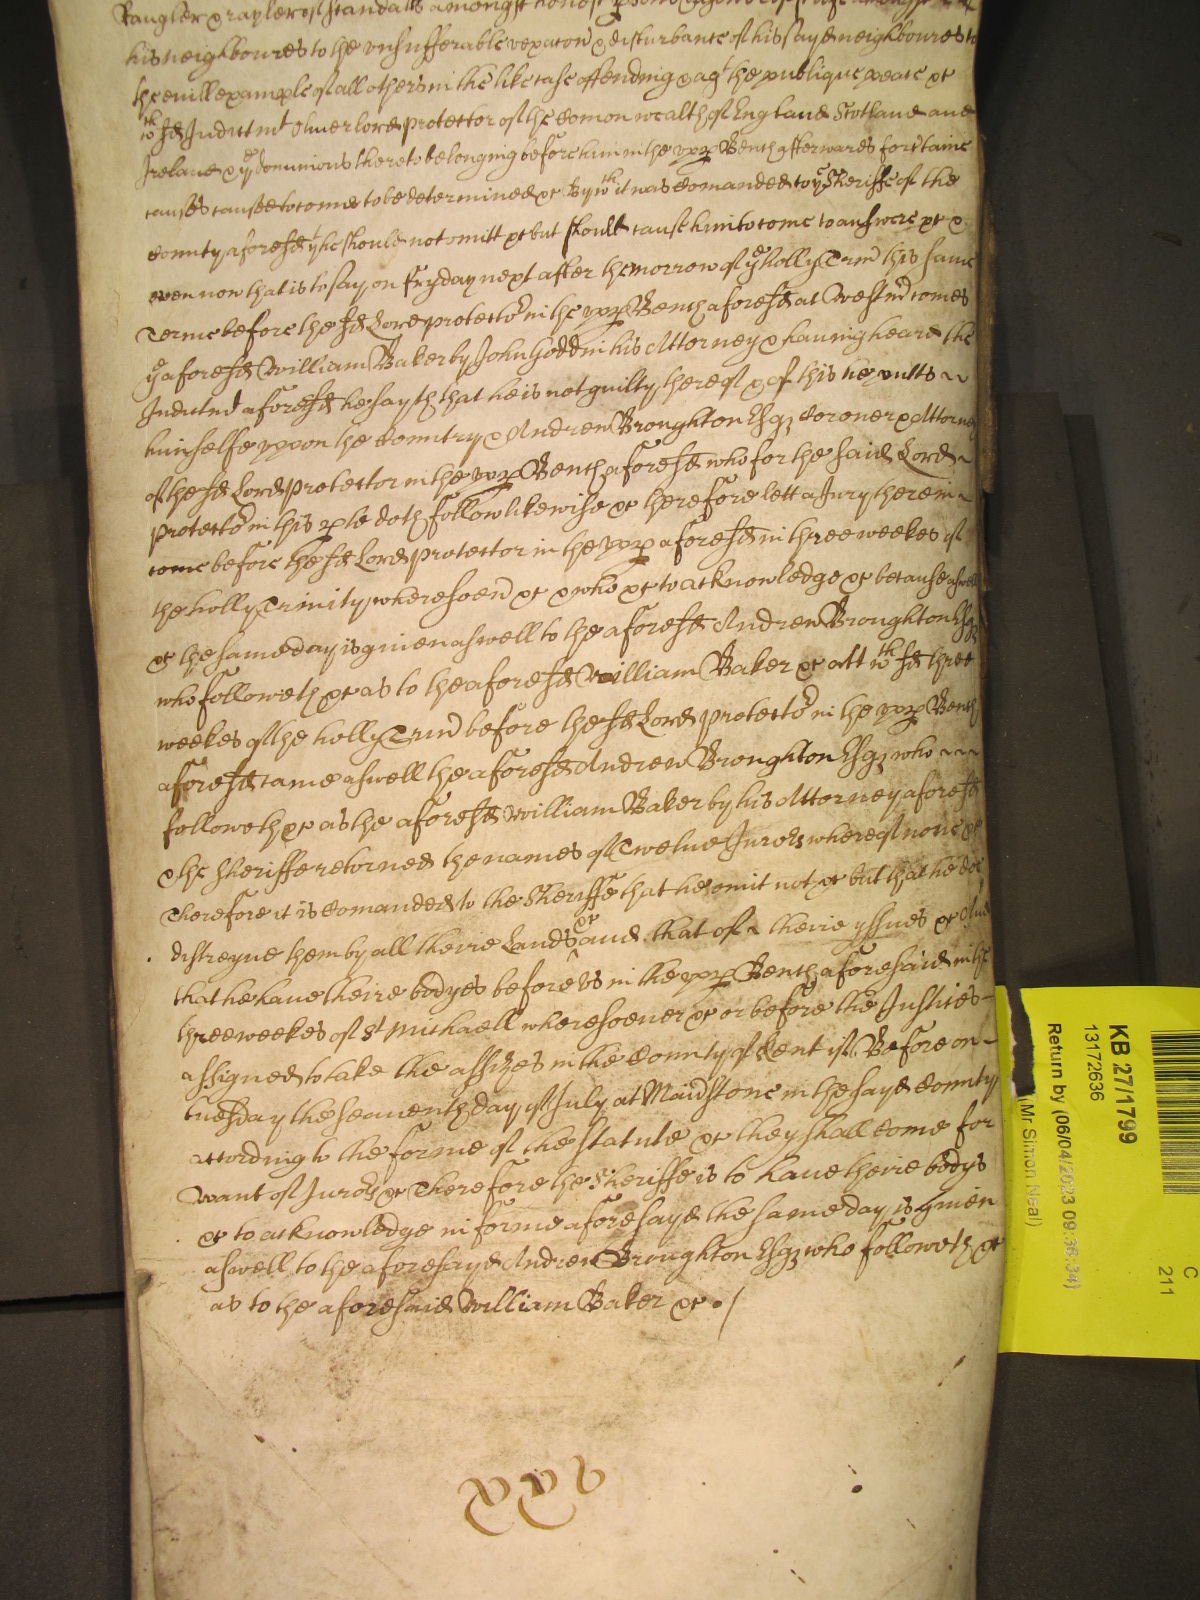 his neighboures to the unsufferable vexacon & disturbance of his sayd neighboures to
the evill example of all others in the like case offending & agt the publique peace &c
wch sd Indictmt Oliver lord protector of the Comon wealth of England Scotland and
Ireland & ye dominions thereto belonging before him in the upp Bench afterwards for certaine
causes caused to come to be determined &c By wch it was Comanded to ye Sheriffe of the
County aforesd yt he should not omitt &c but should cause him to come to answere &c &
even now that is to say on Fryday next after the morrow of ye holly Trin this same
Terme before the sd Lord protector in the upp Bench aforesd at Westmr comes
ye aforesd William Baker by John Goddin his Attorney & haveing heard the
Indictmt aforesd he sayth that he is not guilty thereof & of this he putts
himselfe uppon the Country & Andrew Broughton Esqr Coroner & Attorney
of the sd Lord protector in the upp Bench aforesd who for the said Lord
protector in this pte doth follow likewise &c therefore lett a Jury therein
come before the sd Lord protector in the upp aforesd in three weekes of
the holly Trinity wheresoevr &c & who &c to acknowledge &c because aswell
&c the same day is given aswell to the aforesd Andrew Broughton Esqr
who followeth &c as to the aforesd William Baker &c att wch sd three
weekes of the holly Trin before the sd Lord protector in the upp Bench
aforesd came aswell the aforesd Andrew Broughton Esqr who
followeth &c as the aforesd William Baker by his Attorney aforesd
& the Sheriffe retorned the names of Twelve Jurors whereof none &c
Therefore it is Comanded to the Sheriffe that he omit not &c but that he doe
distreyne them by all theire Lands &c and that of theire yssues &c And
that he have theire bodyes before us in the upp Bench aforesaid in the
three weekes of St Michaell wheresoever &c or before the Justices
assigned to take the assizes in the County of Kent if Before on
Tuesday the seaventh day of July at Maidstone in the sayd County
according to the forme of the statute &c they shall Come for
want of Jurors &c Therefore the Sheriffe is to have theire bodys
&c to acknowledge in forme aforesayd the same day is given
aswell to the aforesayd Andrew Broughton Esqr who followeth &c
as to the aforesaid William Baker &c
xxv
KB 27/1799
13172636
Return by (06/04/2023 09:36:34)
Mr Simon Neal)
C
211